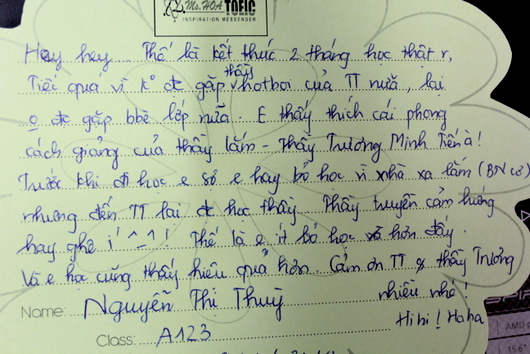 Ms. HOA TOEIC
INSPIRATION MESSENGER
Hey hey... Thế là kết thúc 2 tháng học thật r,
Tiếc quá vì k° đc gặp thầy hotboi của TT nữa, lại
o đc gặp bbè lớp nữa. E thấy thích cái phong
cách giảng của thầy lắm - Thầy Trương Minh Tiến à!
Trước khi đi học e sợ e hay bỏ học vì nhà xa lắm (BN cơ)
nhưng đến TT lại đc học thầy. Thầy truyền cảm hứng
hay ghê í ^_^! Thế là e ít bỏ học hơn đấy.
Và e học cũng thấy hiệu quả hơn. Cảm ơn TT & thầy Trương
nhiều nhé!
Name: Nguyễn Thị Thuỳ
Hihi! Haha
Class: A123
AMD